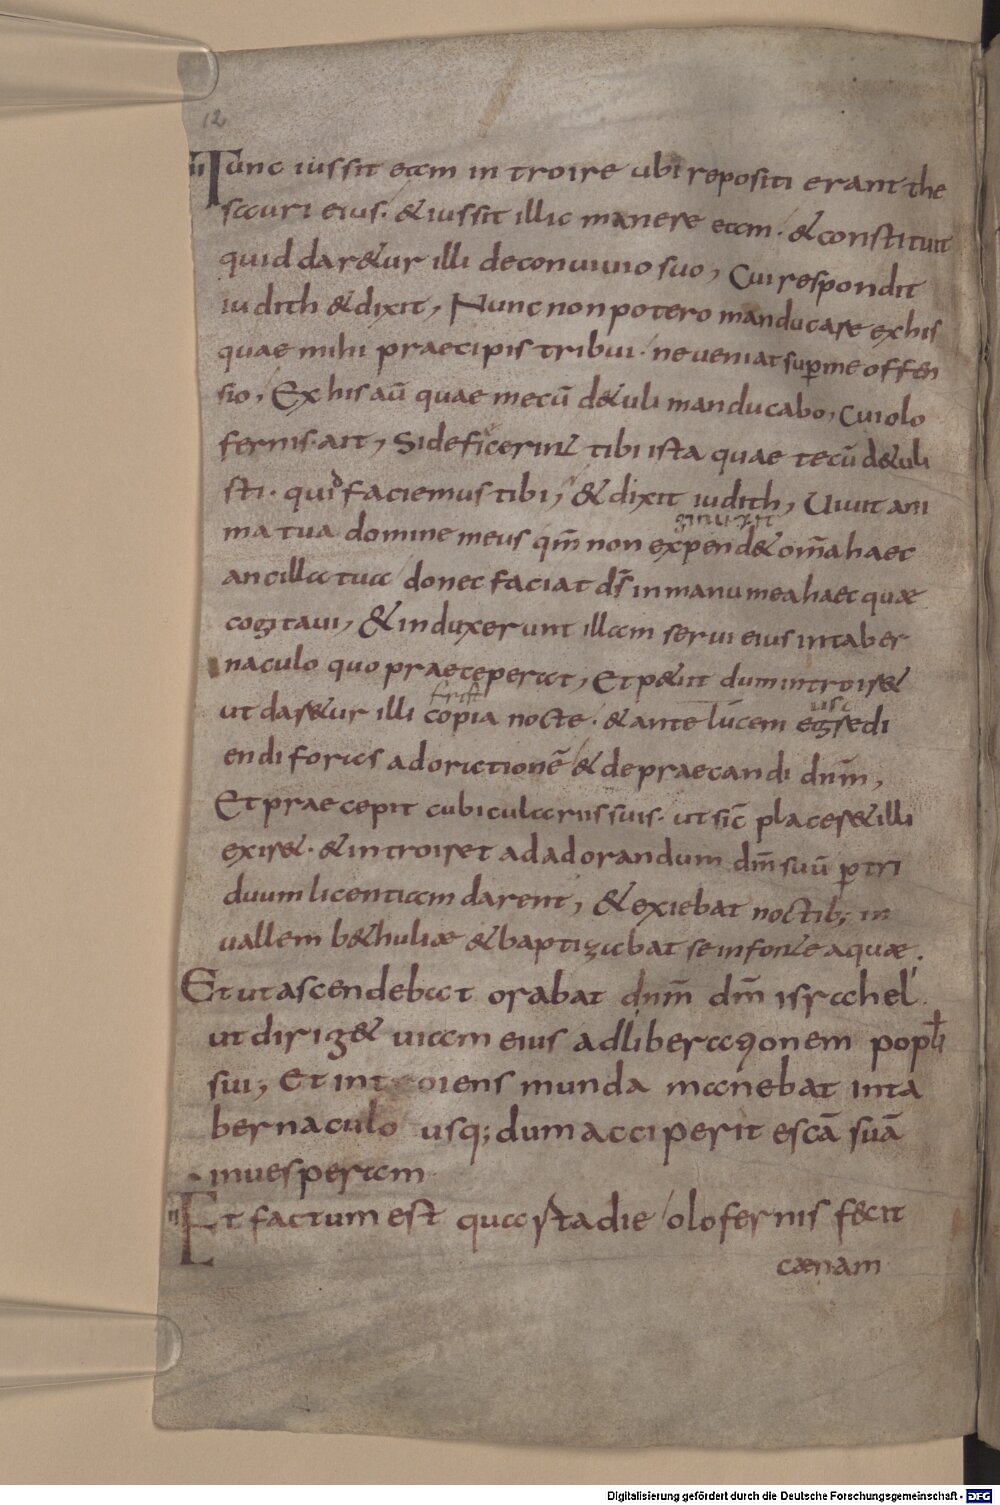 12
Tunc iussit eam in troire ubi repositi erant the
sauri eius. & iussit illic manere eam. & constituit
quid dar&ur illi deconuiuio suo, Cui respondit
iudith & dixit, Nunc non potero manducare ex his
quae mihi praecipis tribui. ne ueniat sup̄ me offen
sio, Ex his aū quae mecū d&uli manducabo, Cui olo
fernis. ait, Si deficerint tibi ista quae tecū d&uli
sti. quid faciemus tibi, & dixit iudith, Uiuit ani
ma tua domine meus qm̄ non expend& om̄a haec
ancilla tua donec faciat ds̄ in manu mea haec quae
cogitaui, & induxerunt illam serui eius intaber
naculo quo praeceperat, Et p&iit dum introir&
ut dar&ur illi copia nocte. & ante lucem egredi
endi foras ad orationē & depraecandi dnm̄,
Et praecepit cubiculariis suis. ut sic̄ placer& illi
exir&. & introiret ad adorandum dm̄ suū p̄ tri
duum licentiam darent, & exiebat noctib; in
uallem b&huliæ & baptizabat se in fonte aquæ.
Et ut ascendebat orabat dnm̄ dm̄ israhel.
ut dirig& uiam eius ad liberationem popl̄i
sui, Et introiens munda manebat inta
bernaculo usq; dum acciperit escā suā
in uesperam
Et factum est quarta die olofernis fecit
cænam
Digitalisierung gefördert durch die Deutsche Forschungsgemeinschaft - DFG